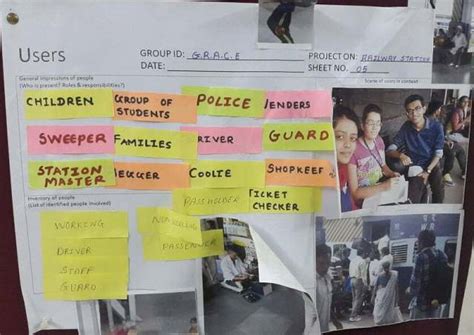 Users
GROUP ID: G.R.A.C.E
PROJECT ON: RAILWAY STATION
DATE:
SHEET NO. 05
General impressions of people
(Who is present? Roles & responsibilities?)
Scene of users in context
CHILDREN
GROUP OF STUDENTS
POLICE
VENDERS
SWEEPER
FAMILIES
DRIVER
GUARD
STATION MASTER
BEGGER
COOLIE
SHOPKEEP
PASSHOLDER
TICKET CHECKER
Inventory of people
(List of identified people involved)
WORKING
DRIVER
STAFF
GUARD
PASSENGER